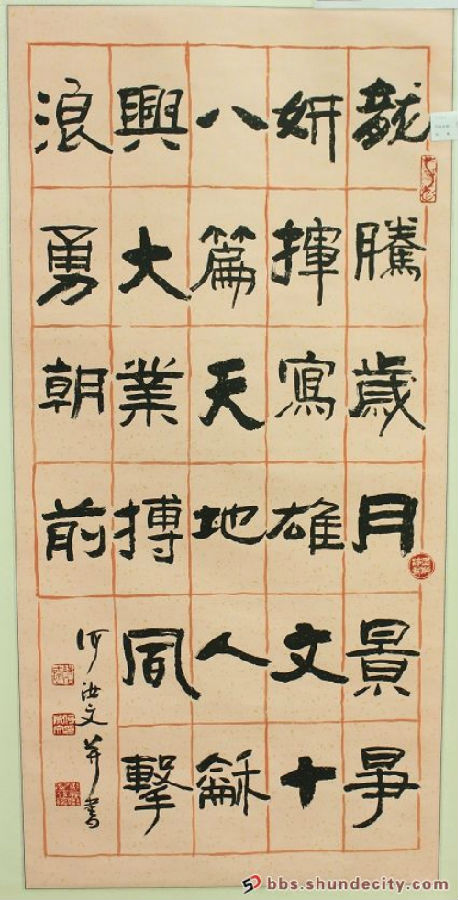 龍騰歲月景爭
妍揮寫雄文十
八篇天地人龢
興大業搏風擊
浪勇朝前
何汝文并書
bbs.shundecity.com